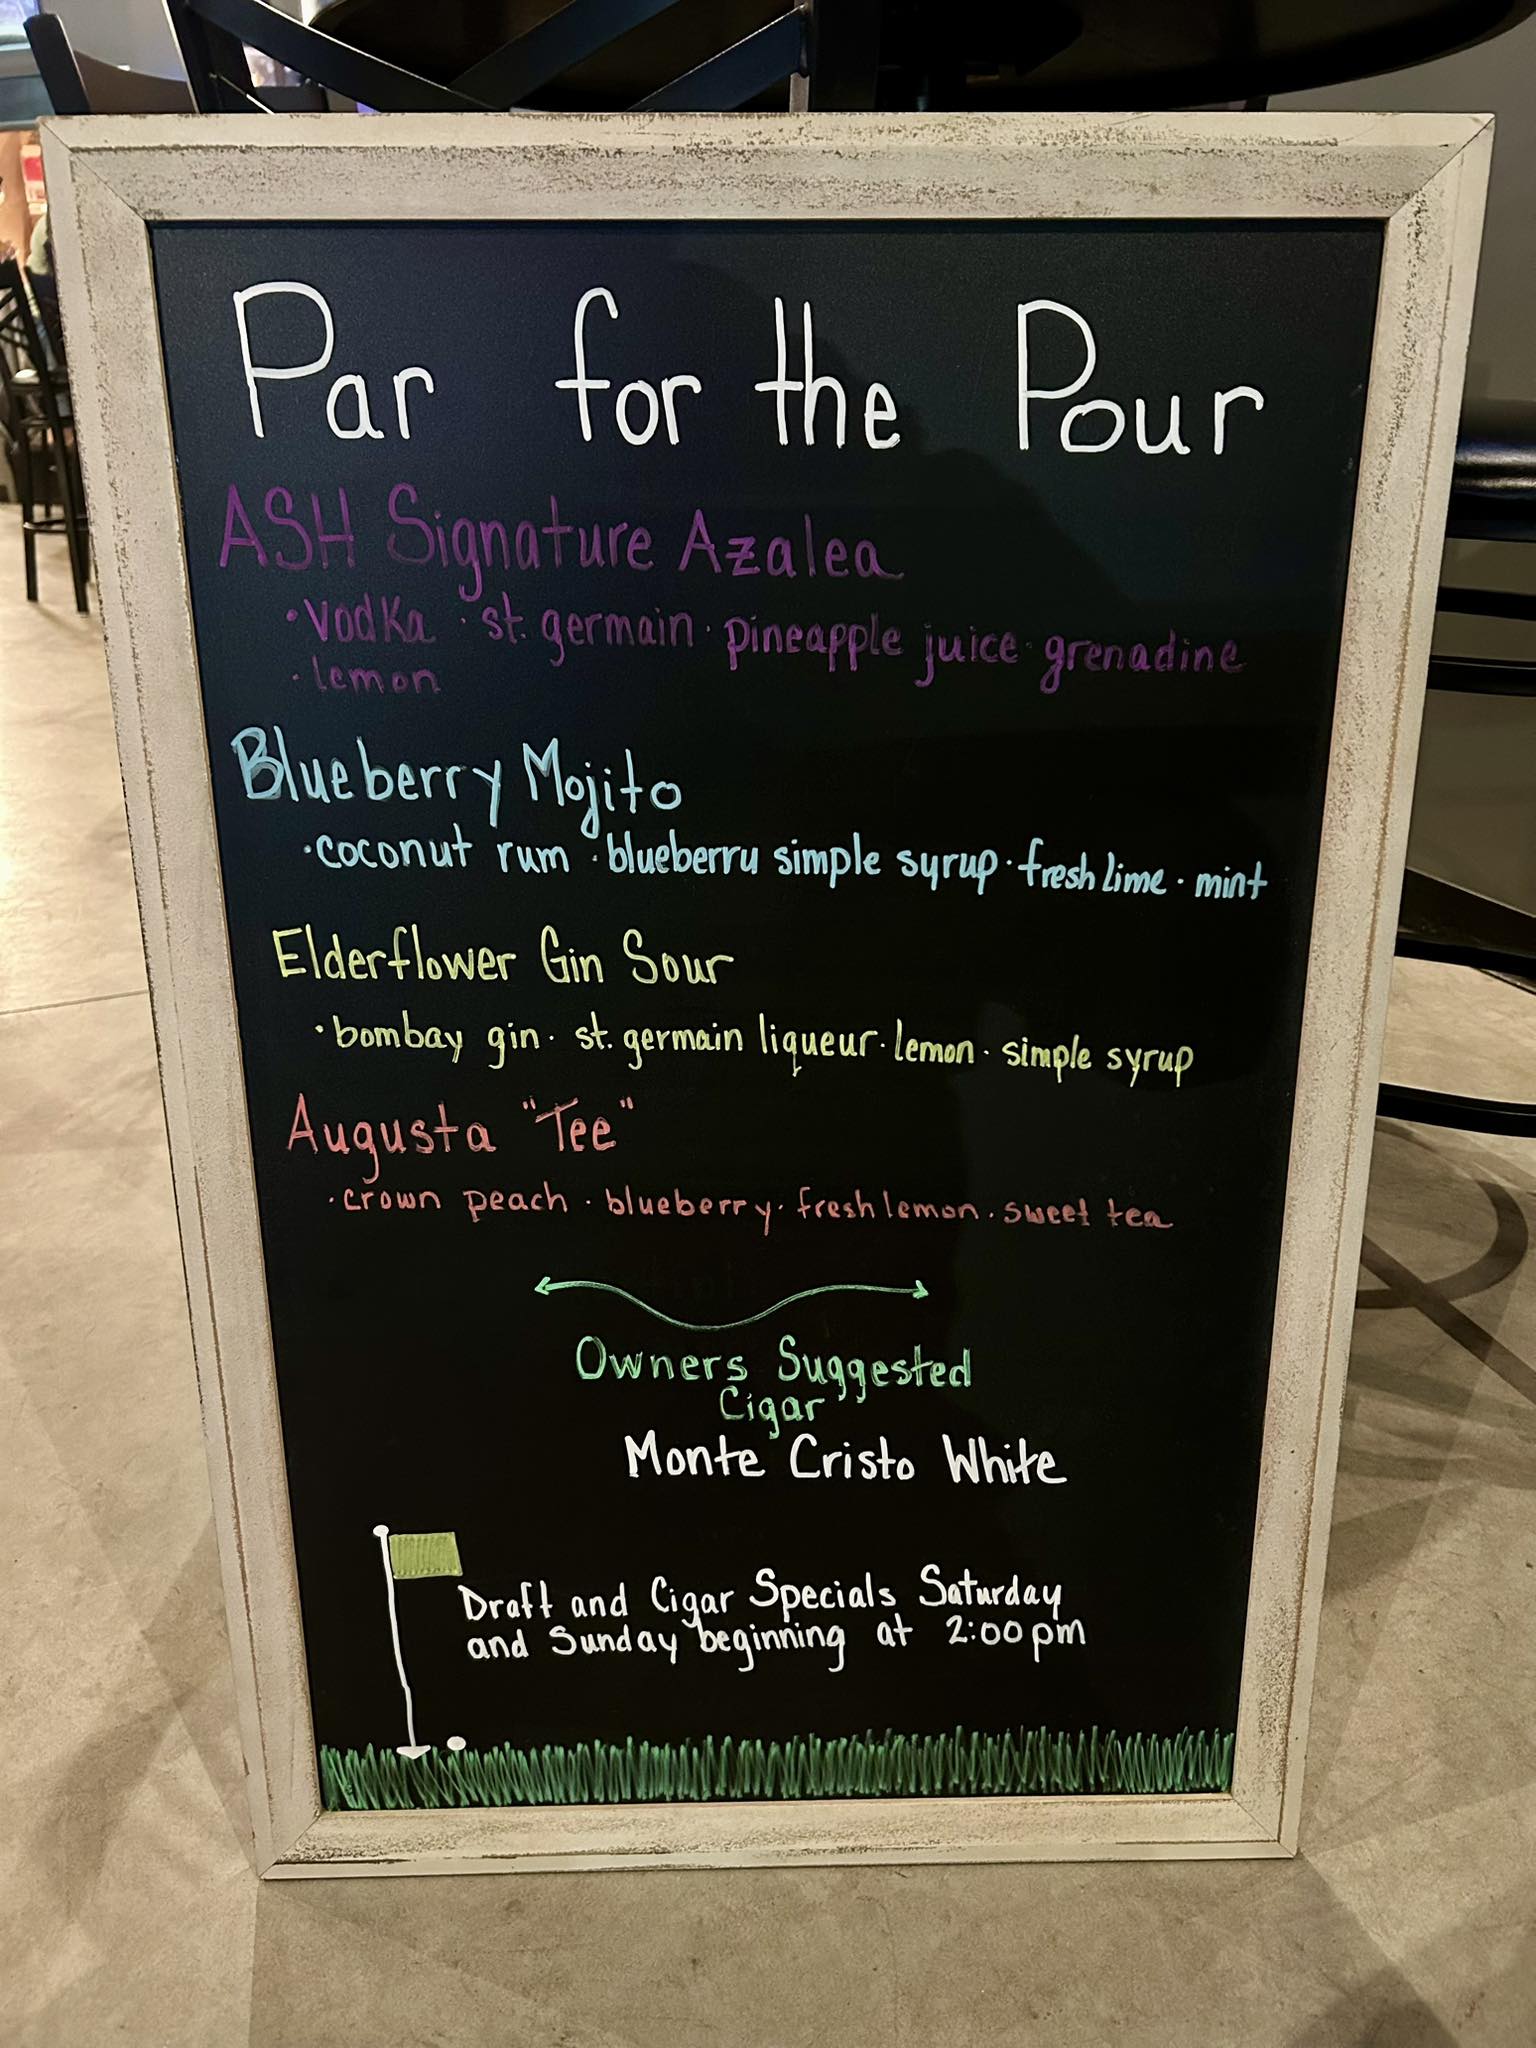 Par for the Pour
ASH Signature Azalea
• Vodka • st. germain • pineapple juice • grenadine
• lemon
Blueberry Mojito
• coconut rum • blueberry simple syrup • fresh lime • mint
Elderflower Gin Sour
• bombay gin • st. germain liqueur • lemon • simple syrup
Augusta "Tee"
• crown peach • blueberry • fresh lemon • sweet tea
Owners Suggested
Cigar
Monte Cristo White
Draft and Cigar Specials Saturday
and Sunday beginning at 2:00pm